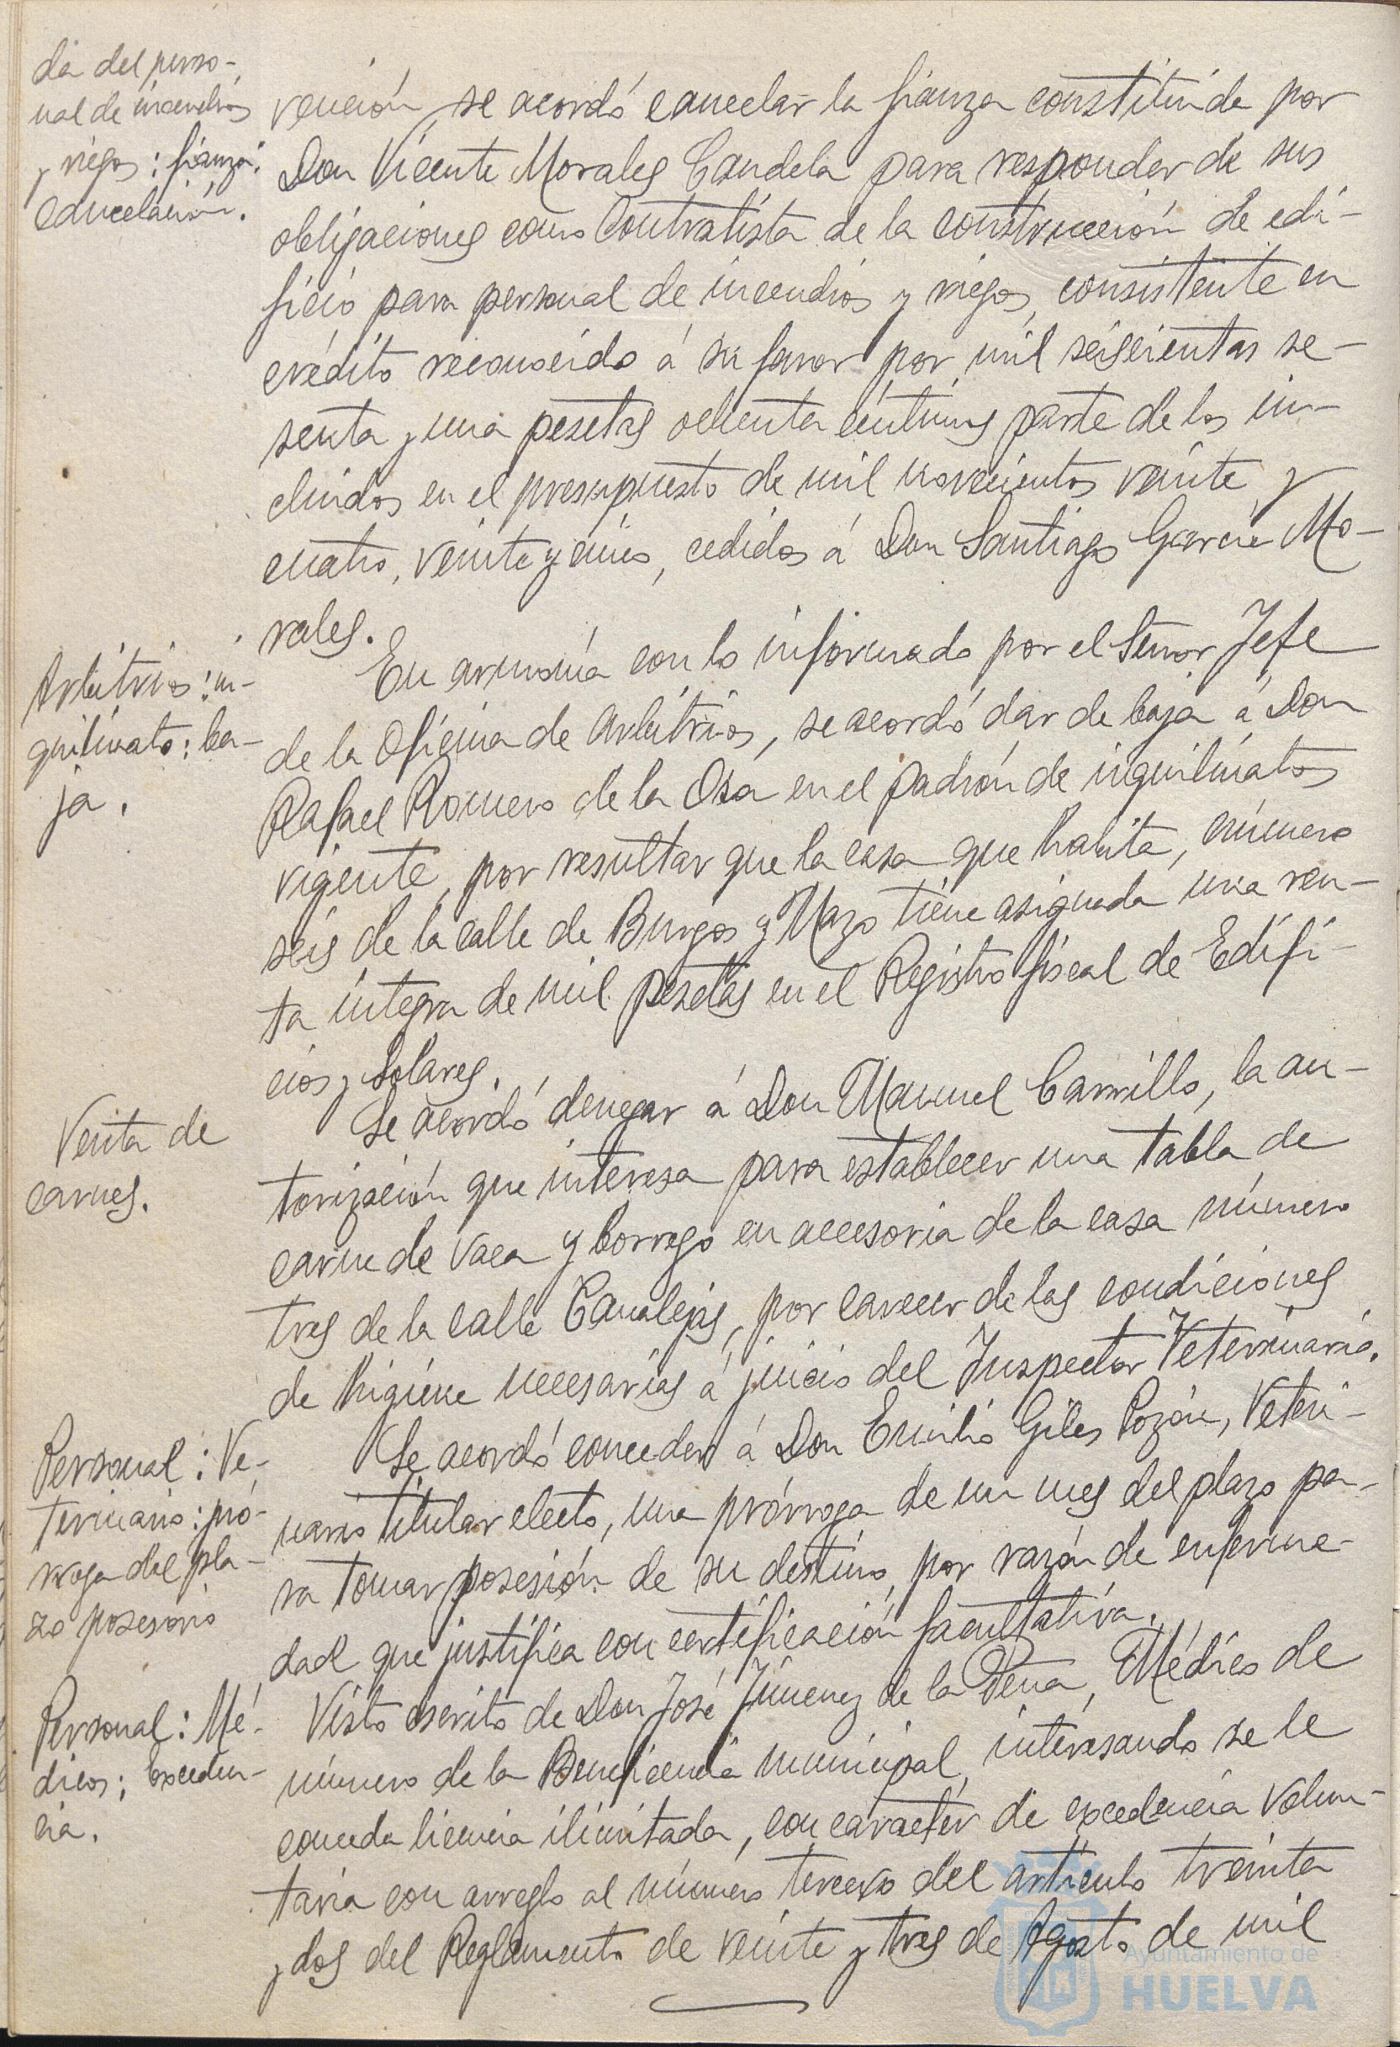 da del perso-
nal de incendios
y riegos: fianza:
cancelación.
vención, se acordó cancelar la fianza constituida por
Don Vicente Morales Candela para responder de sus
obligaciones como Contratista de la construcción de edi-
ficio para personal de incendios y riegos, consistente en
crédito reconocido á su favor por mil seiscientas se-
senta y una pesetas ochenta céntimos parte de los in-
cluidos en el presupuesto de mil novecientos veinte y
cuatro, veinte y cinco, cedidos á Don Santiago García Mo-
rales.
Arbitrios: in-
quilinato: ba-
ja.
En armonía con lo informado por el Señor Jefe
de la Oficina de Arbitrios, se acordó dar de baja á Don
Rafael Romero de la Osa en el padrón de inquilinatos
vigente, por resultar que la casa que habita, número
seis de la calle de Burgos y Mazo tiene asignada una ren-
ta íntegra de mil pesetas en el Registro fiscal de Edifi-
cios y Solares.
Venta de
carnes.
Se acordó denegar á Don Manuel Carrillo, la au-
torización que interesa para establecer una tabla de
carne de vaca y borrego en accesoria de la casa número
tres de la calle Canalejas, por carecer de las condiciones
de higiene necesarias á juicio del Inspector Veterinario.
Personal: Ve-
terinario: pró-
rroga del pla-
zo posesorio
Se acordó conceder á Don Emilio Giles Pozón, Veteri-
nario titular electo, una prórroga de un mes del plazo pa-
ra tomar posesión de su destino, por razón de enferme-
dad que justifica con certificación facultativa.
Personal: Mé-
dicos: Exceden-
cia.
Visto escrito de Don José Jiménez de la Peña, Médico de
número de la Beneficencia municipal, interesando se le
conceda licencia ilimitada, con carácter de excedencia volun-
taria con arreglo al número tercero del artículo treinta
y dos del Reglamento de veinte y tres de Agosto de mil
Ayuntamiento de
HUELVA